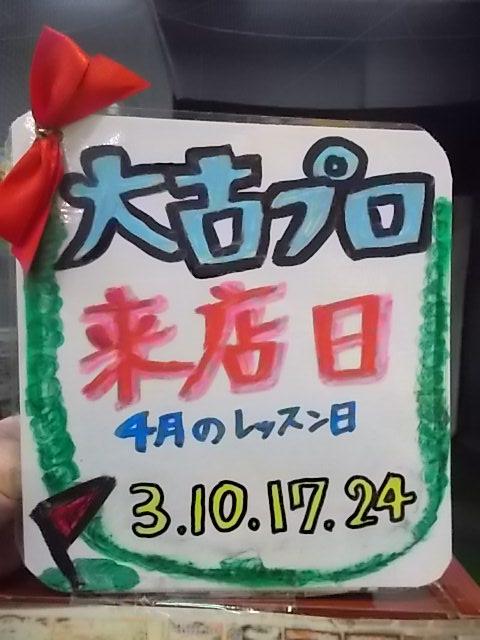 大古プロ
来店日
4月のレッスン日
3.10.17.24